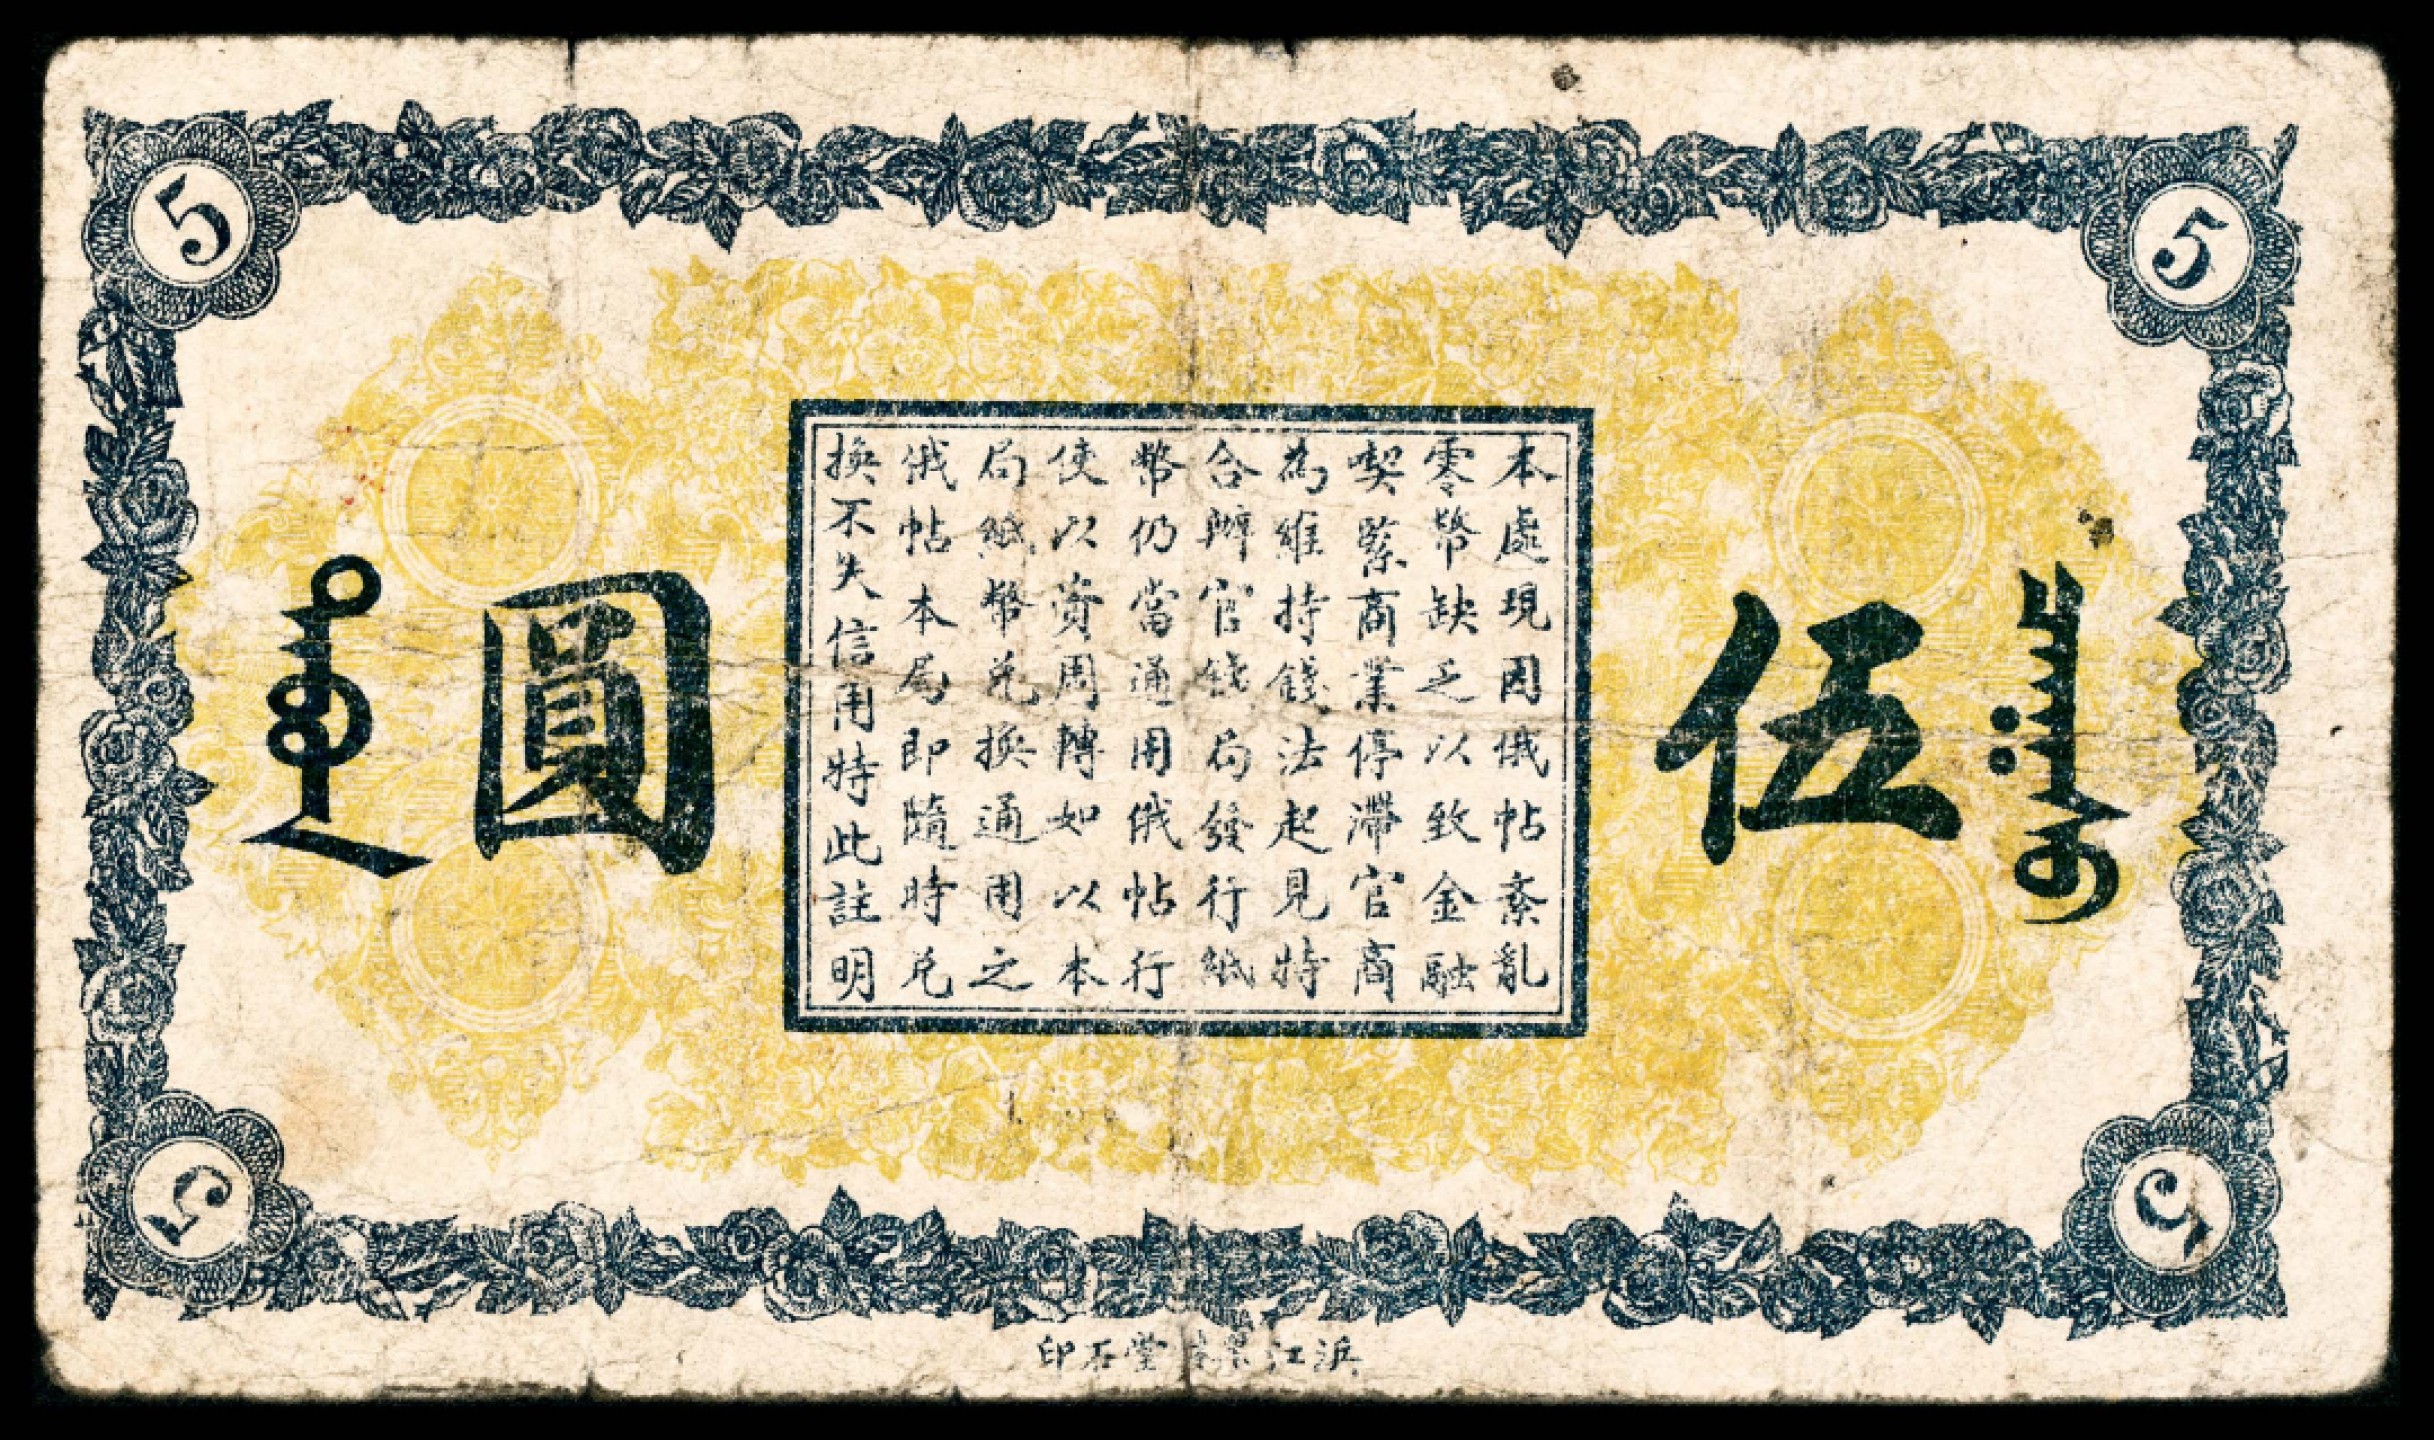 5
5
伍
圓
本處現因俄帖紊亂
零幣缺乏以致金融
喫緊商業停滯官商
為維持錢法起見特
合辦官錢局發行紙
幣仍當通用俄帖行
使以資周轉如以本
局紙幣兌換通用之
俄帖本局即隨時兌
換不失信用特此註明
5
5
浜江
堂石印